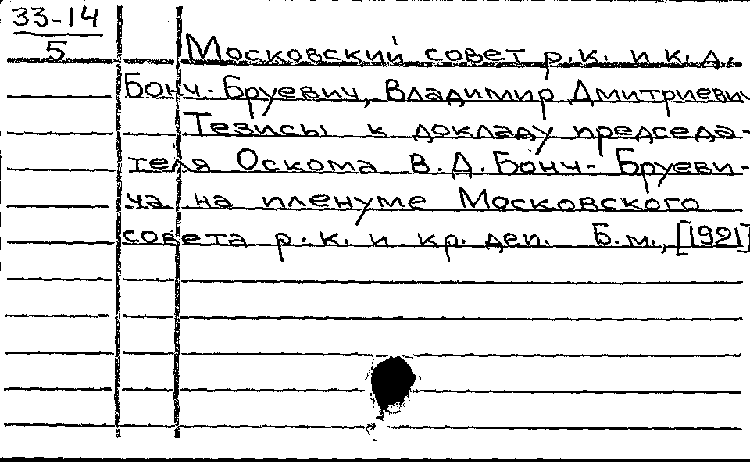 33-14
5
Московский совет р.к. и к.д.
Бонч-Бруевич, Владимир Дмитриевич
Тезисы к докладу председа-
теля Оскома В.Д. Бонч-Бруеви-
ча на пленуме Московского
совета р.к. и кр. деп. Б.м., [1921]